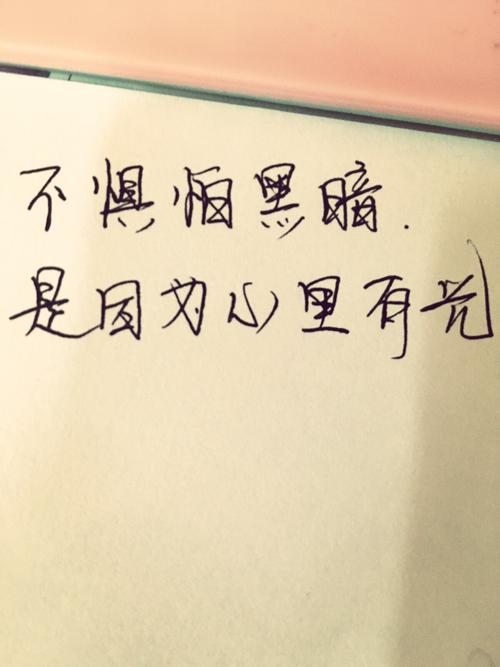 不惧怕黑暗.
是因为心里有光